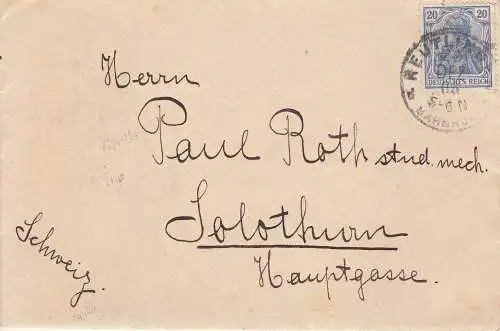 20 20
DEUTSCHES REICH
REUTLIN
5-6 N
BAHNHO
Herrn
Paul Roth stud. mech.
Solothurn
Hauptgasse.
Schweiz.